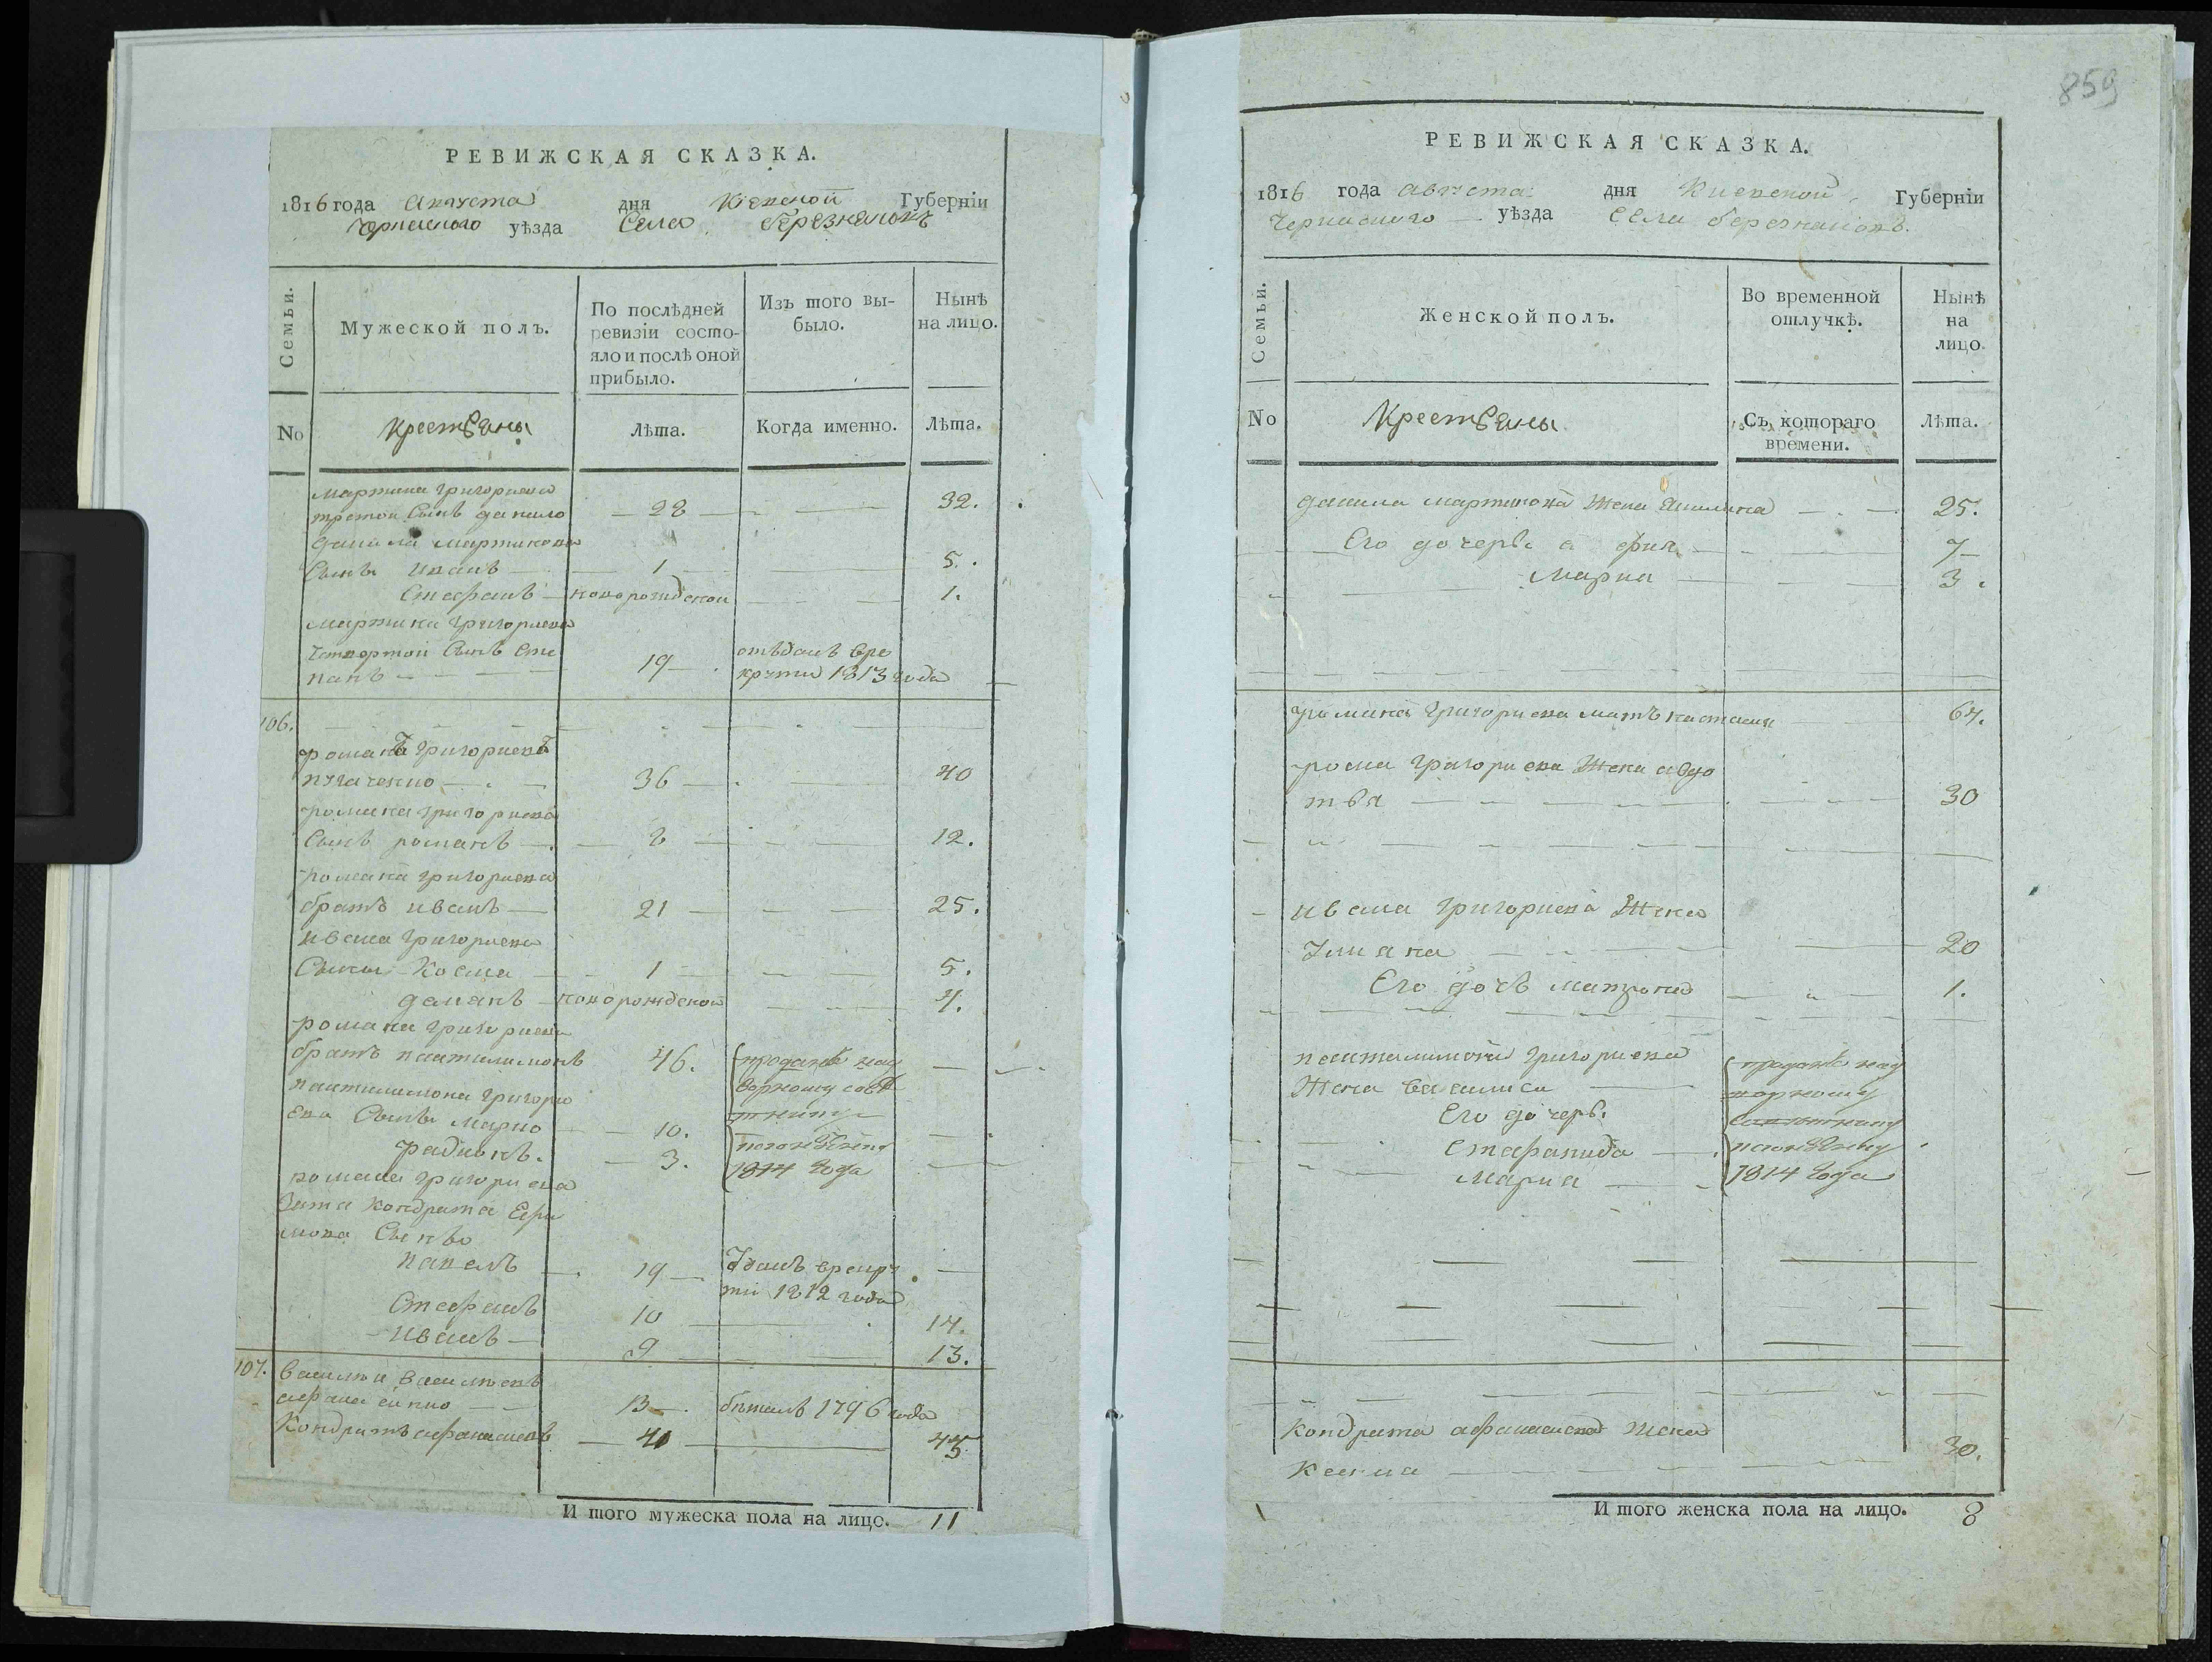 РЕВИЖСКАЯ СКАЗКА.
1816 года Августа дня Кіевской Губерніи
Черкаского уѣзда Села Березняковъ
Семьи.
Мужеской полъ.
По послѣдней ревизіи состо-
яло и послѣ оной
прибыло.
Изъ того вы-
было.
Нынѣ
на лицо.
No
Крестьяны
Лѣта.
Когда именно.
Лѣта.
мартина григориева
третой Сынъ данило 28 32.
данила мартинова
Сынъ иванъ 1 5.
Стефанъ новорожденой 1.
мартина григориева
Четвертой Сынъ Сте
панъ 19 отъданъ вре
крути 1813 года
106.
романъ григориевъ
пугаченко 36 40
романа григориева
Сынъ романъ 8 12.
романа григориева
братъ иванъ 21 25.
ивана григориева
Сыны Косма 1 5.
демянъ новорожденой 4.
романа григориева
братъ пантилимонъ 46. проданъ над
пантилимона григори
ева Сынъ марко 10. ворному совѣ
тнику
радионъ. 3.
1814 года
романа григориева
зятя кондрата Ефи
мова Сынъ
павелъ 19 Зданъ врекру
ти 1812 года
Стефанъ 10 14.
иванъ 9 13.
107. василий василиевъ
афанасенко 13 бѣжалъ 1796 года
Кондратъ афанасиевъ 41 45
И того мужеска пола на лицо. 11
859
РЕВИЖСКАЯ СКАЗКА.
1816 года Августа дня Киевской Губерніи
Черкаского уѣзда Села березняковъ.
Семьи.
Женской полъ.
Во временной
отлучкѣ.
Нынѣ
на
лицо.
No
Крестьяны
Съ котораго
времени.
Лѣта.
данила мартинова Жена Акилина 25.
Его дочерь афия 7
Мариа 3.
романа григориева мать настасия 64.
рома григориева Жена авдо
тья 30
ивана григориева Жена
Улиана 20
Его дочь матрона 1.
пантилимона григориева
Жена василиса
Его дочерь
Стефанида
Мариа
проданъ над
ворному
совѣтнику
1814 года
Кондрата афанасиева Жена
Ксения 30.
И того женска пола на лицо. 8